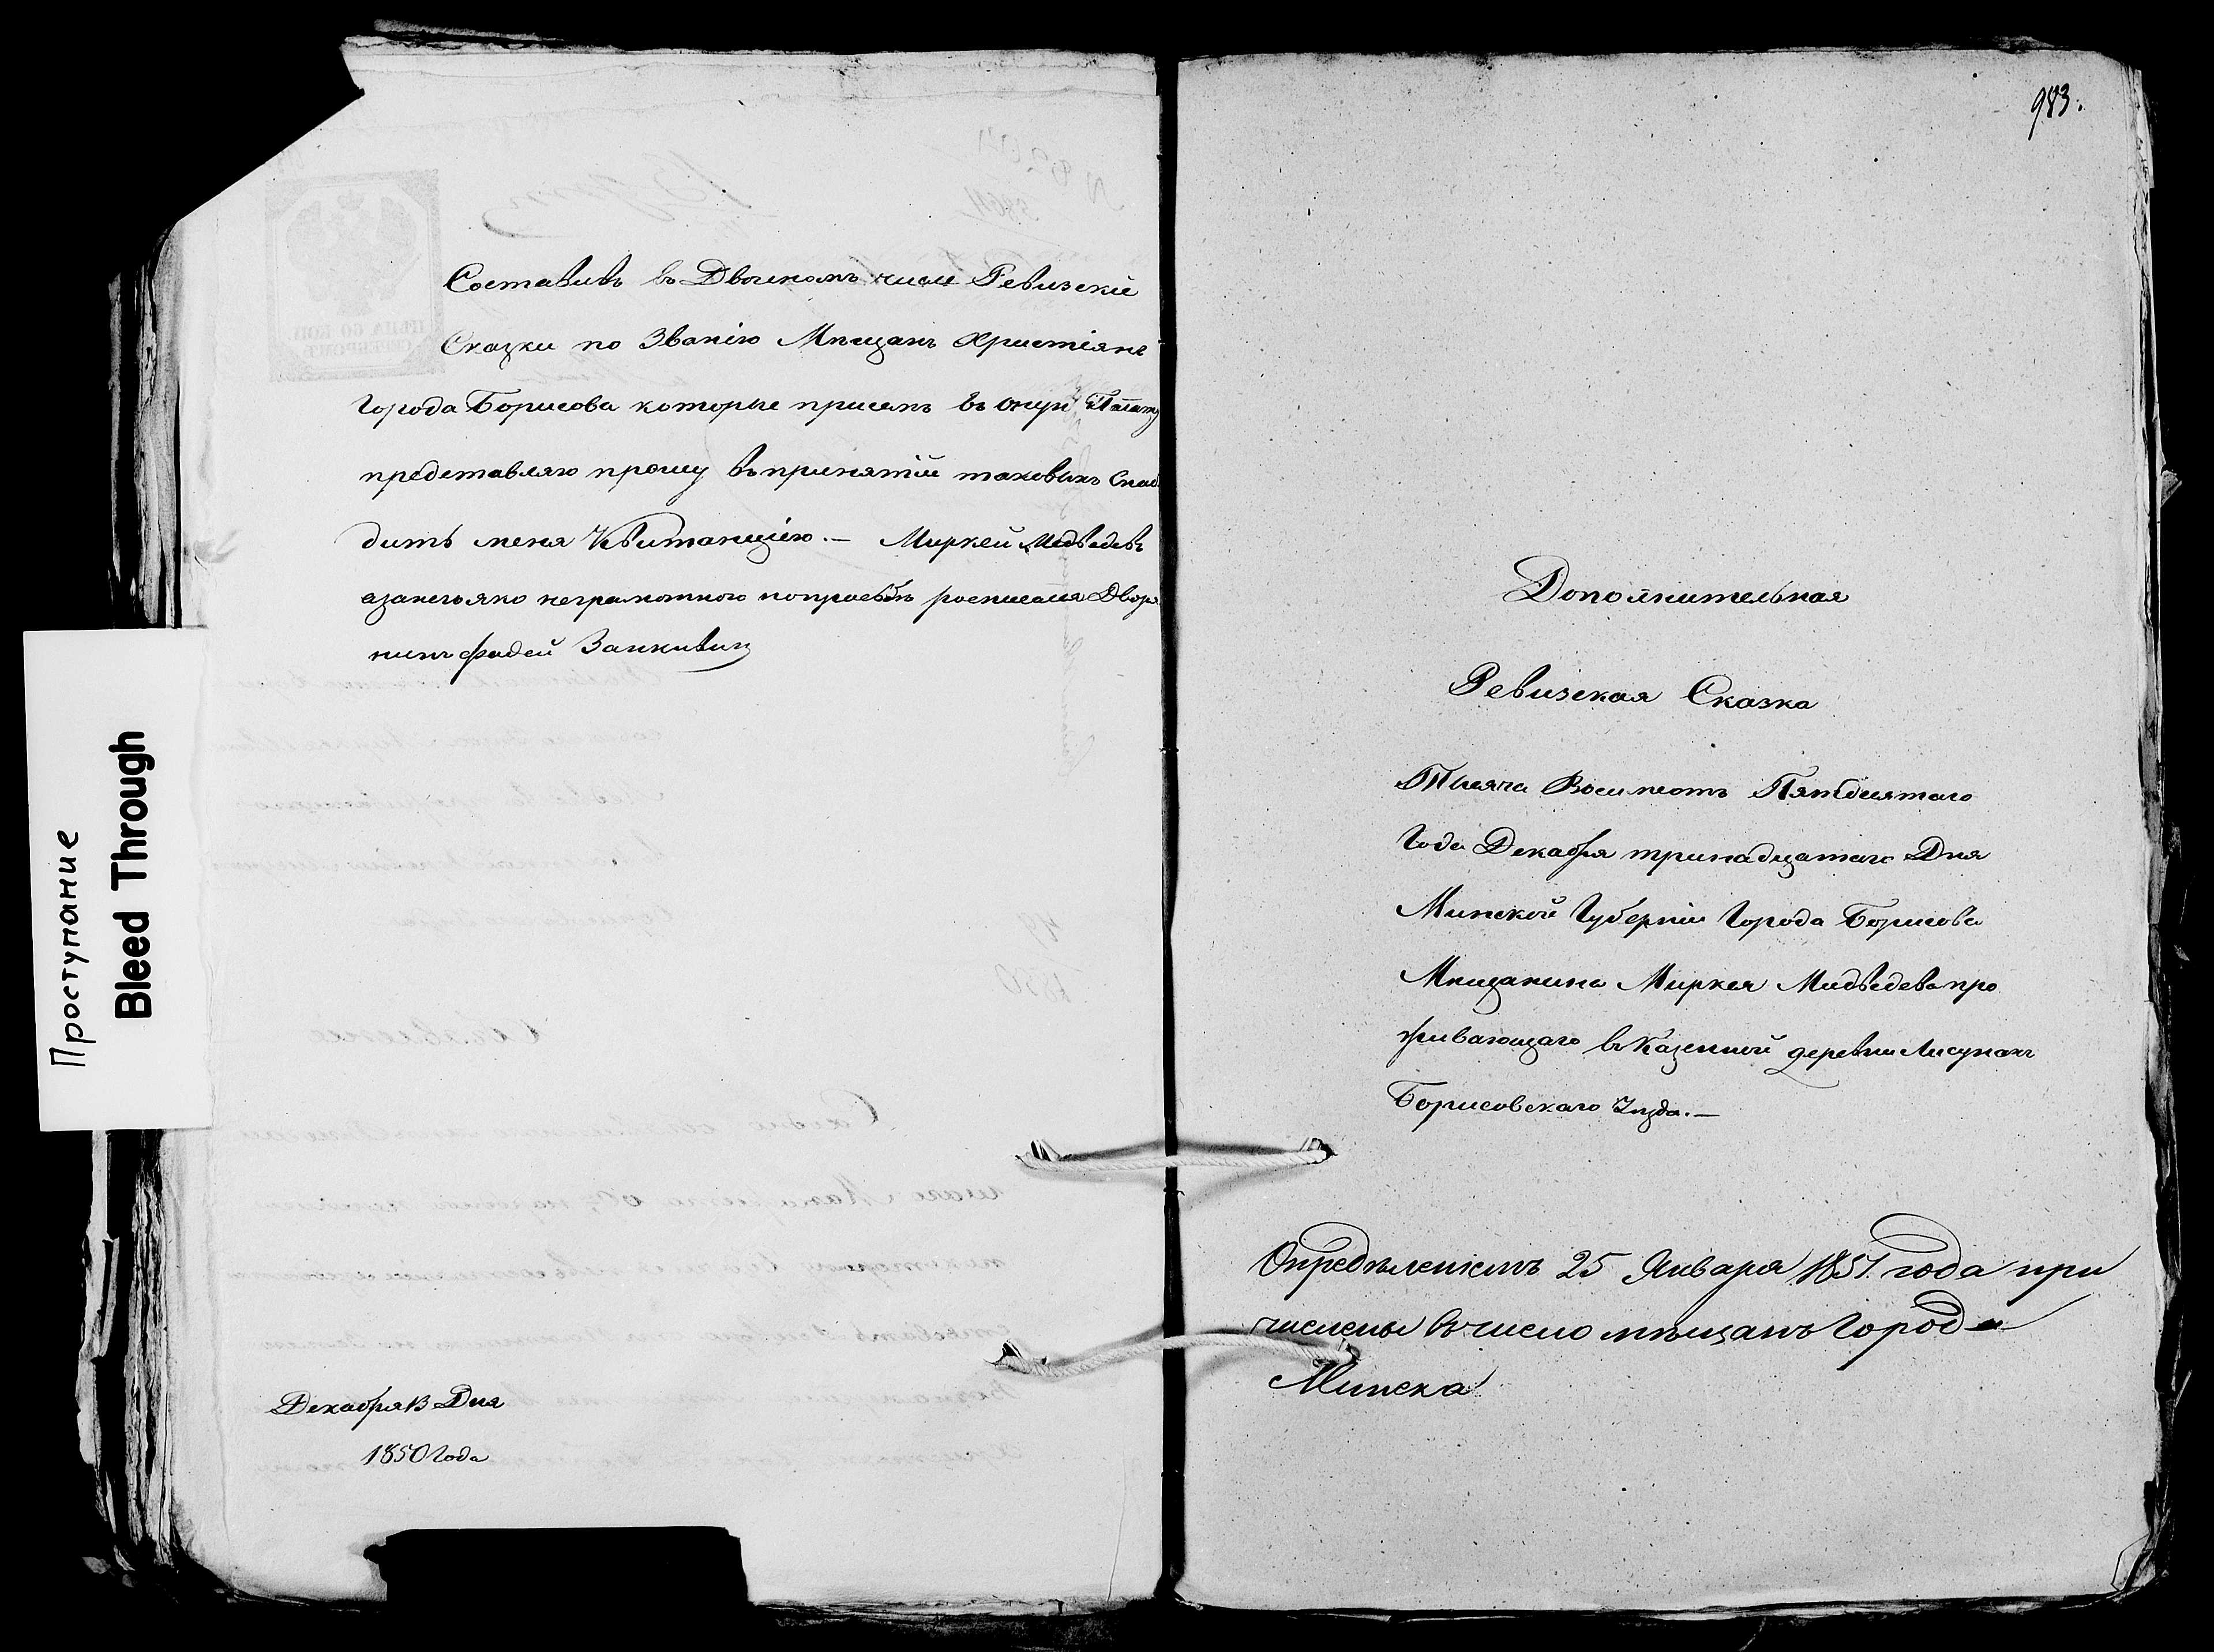 Составивъ въ Двойномъ числѣ Ревизскіе
Сказки по Званію Мѣщанъ Христіянъ
Города Борисова которые присемъ въ оную Палату
представляю прошу въпринятіи таковыхъ Снаб
дить меня Квитанціею.— Миркей Медведевъ
азанегояко неграмотного попросьбѣ росписался Дворя
нинъ Фадей Занкивич
Декабря 13 Дня
1850 Года
Проступание
Bleed Through
983.
Дополнительная
Ревизская Сказка
Тысяча Восимсотъ Пятьдисятаго
Года Декабря тринадцатаго Дня
Минской Губерніи Города Борисова
Мѣщанина Миркея Мидведева про
живающаго въ Казенной деревни Лисунахъ
Борисовскаго Уѣзда.—
Опредѣленіемъ 25 Января 1851 года при
числены въ число мѣщанъ Города
Минска